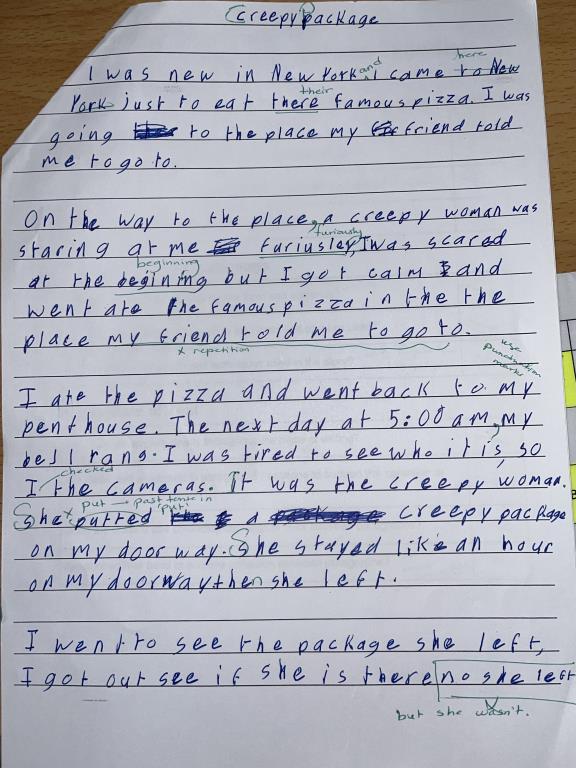 Creepy Package
and here
I was new in New York I came to New
their
York just to eat there famous pizza. I was
going to the place my friend told
me to go to.
On the way to the place, a creepy woman was
furiously
staring at me furiusley, I was scared
beginning
at the begining but I got calm and
went ate the famous pizza in the the
place my friend told me to go to.
x repetition
use punctuation marks
I ate the pizza and went back to my
penthouse. The next day at 5:00 am, my
bell rang. I was tired to see who it is, so
checked
I the cameras. It was the creepy woman.
x put → past tense in 'put'
She putted a creepy package
on my door way. She stayed like an hour
on my doorway then she left.
I went to see the package she left,
I got out see if she is there no she left
but she wasn't.